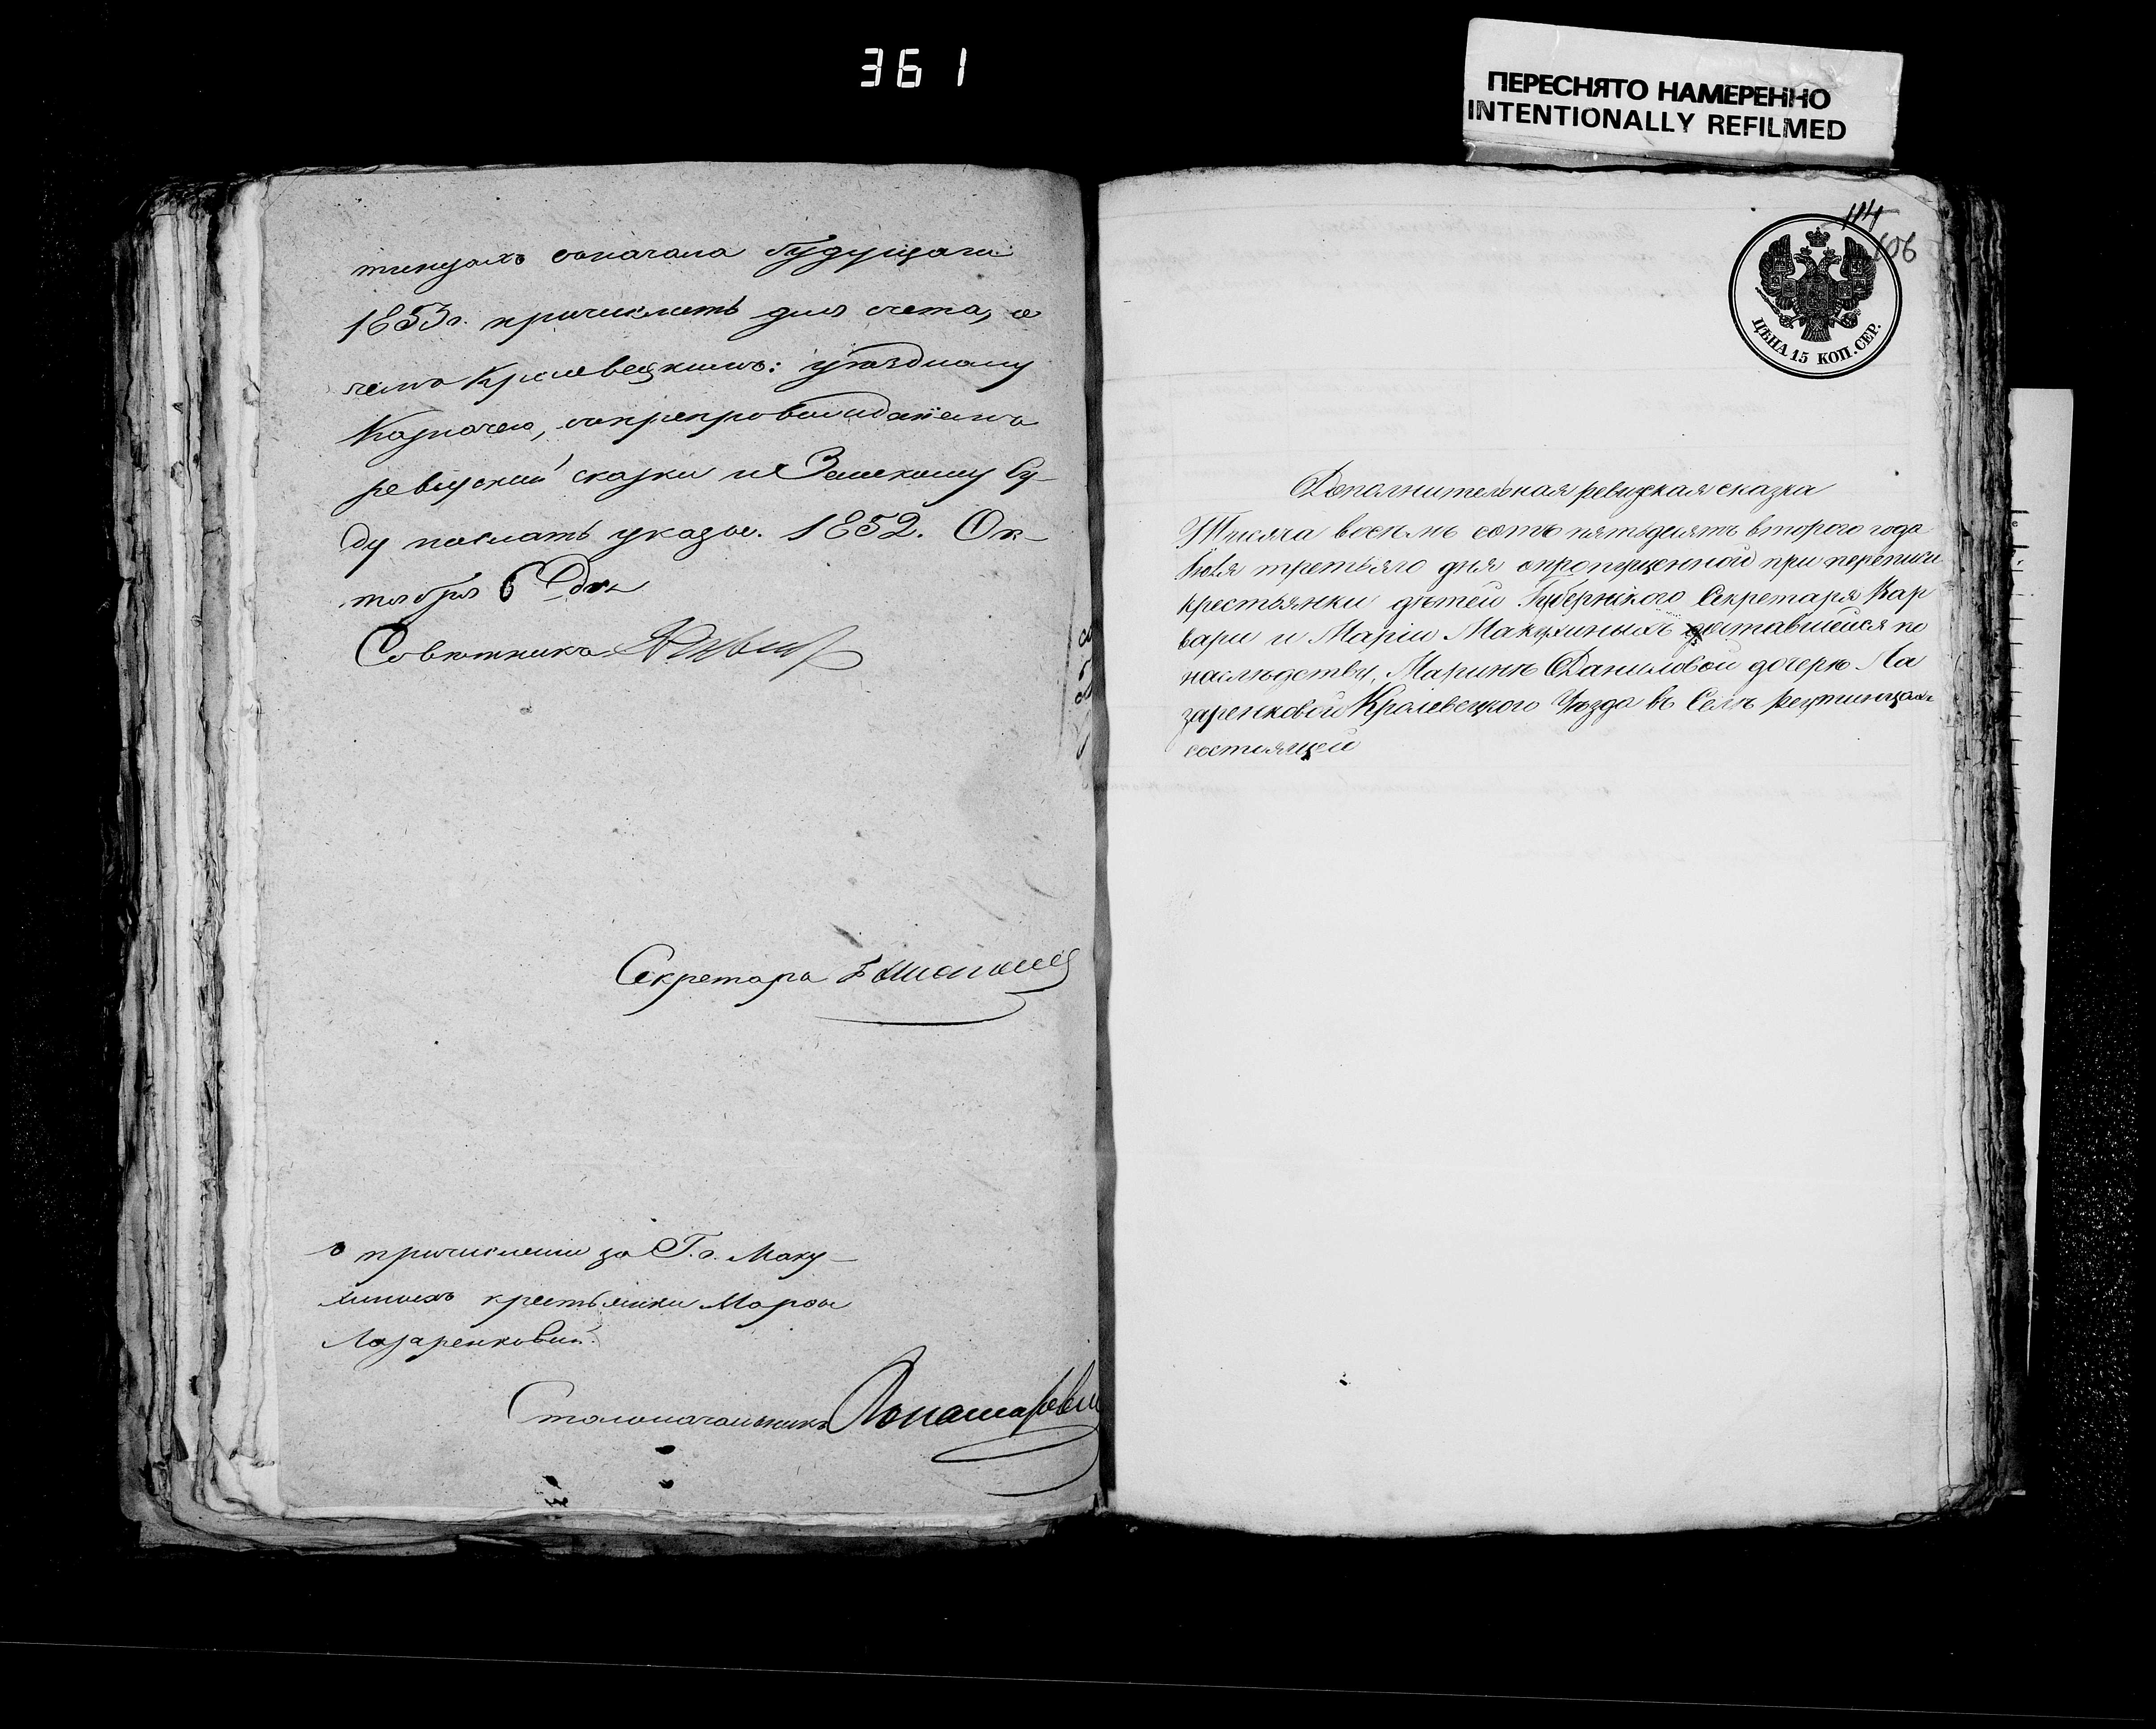 361
ПЕРЕСНЯТО НАМЕРЕННО
INTENTIONALLY REFILMED
тинцахъ сначала будущаго
1853 г. причислить для счета, о
чемъ Кролевецкимъ: уѣздному
Казначею, съ препровожденіемъ
ревизской сказки и Земскому Су-
ду послать указы. 1852. Ок-
тября 6 дня
Совѣтникъ
Секретарь
о причисленіи за Г. г. Маку-
хиныхъ крестьянки Марфы
Лазаренковой.
Столоначальникъ
114
106
ЦѢНА 15 КОП. СЕР.
Дополнительная ревизская сказка
Тысяча восемь сотъ пятьдесятъ второго года
Іюля третьяго дня о пропущенной при переписи
крестьянки дѣтей Губернскаго Секретаря Вар
вары и Маріи Макухиныхъ доставшейся по
наслѣдству, Маринѣ Даниловой дочерѣ Ла
заренковой Кролевецкого Уѣзда въ Селѣ Реутинцахъ
состоящей